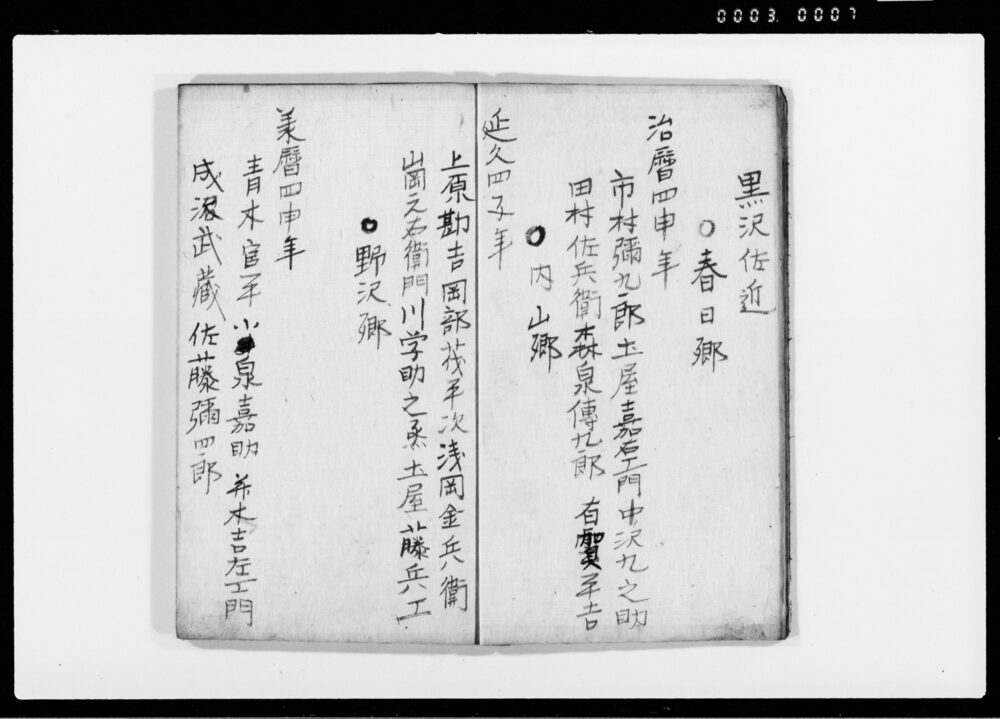 0003. 0007
黒沢佐近
○春日郷
治暦四申年
市村彌九郎 土屋嘉右エ門 中沢九之助
田村佐兵衛 森泉傳九郎 有賀平吉
○内山郷
延久四子年
上原勘吉 岡部茂平次 浅岡金兵衛
山岡元右衛門 川学助之丞 土屋藤兵エ
○野沢郷
美暦四申年
青木官平 小泉嘉助 并木吉左エ門
成沢武藏 佐藤彌四郎